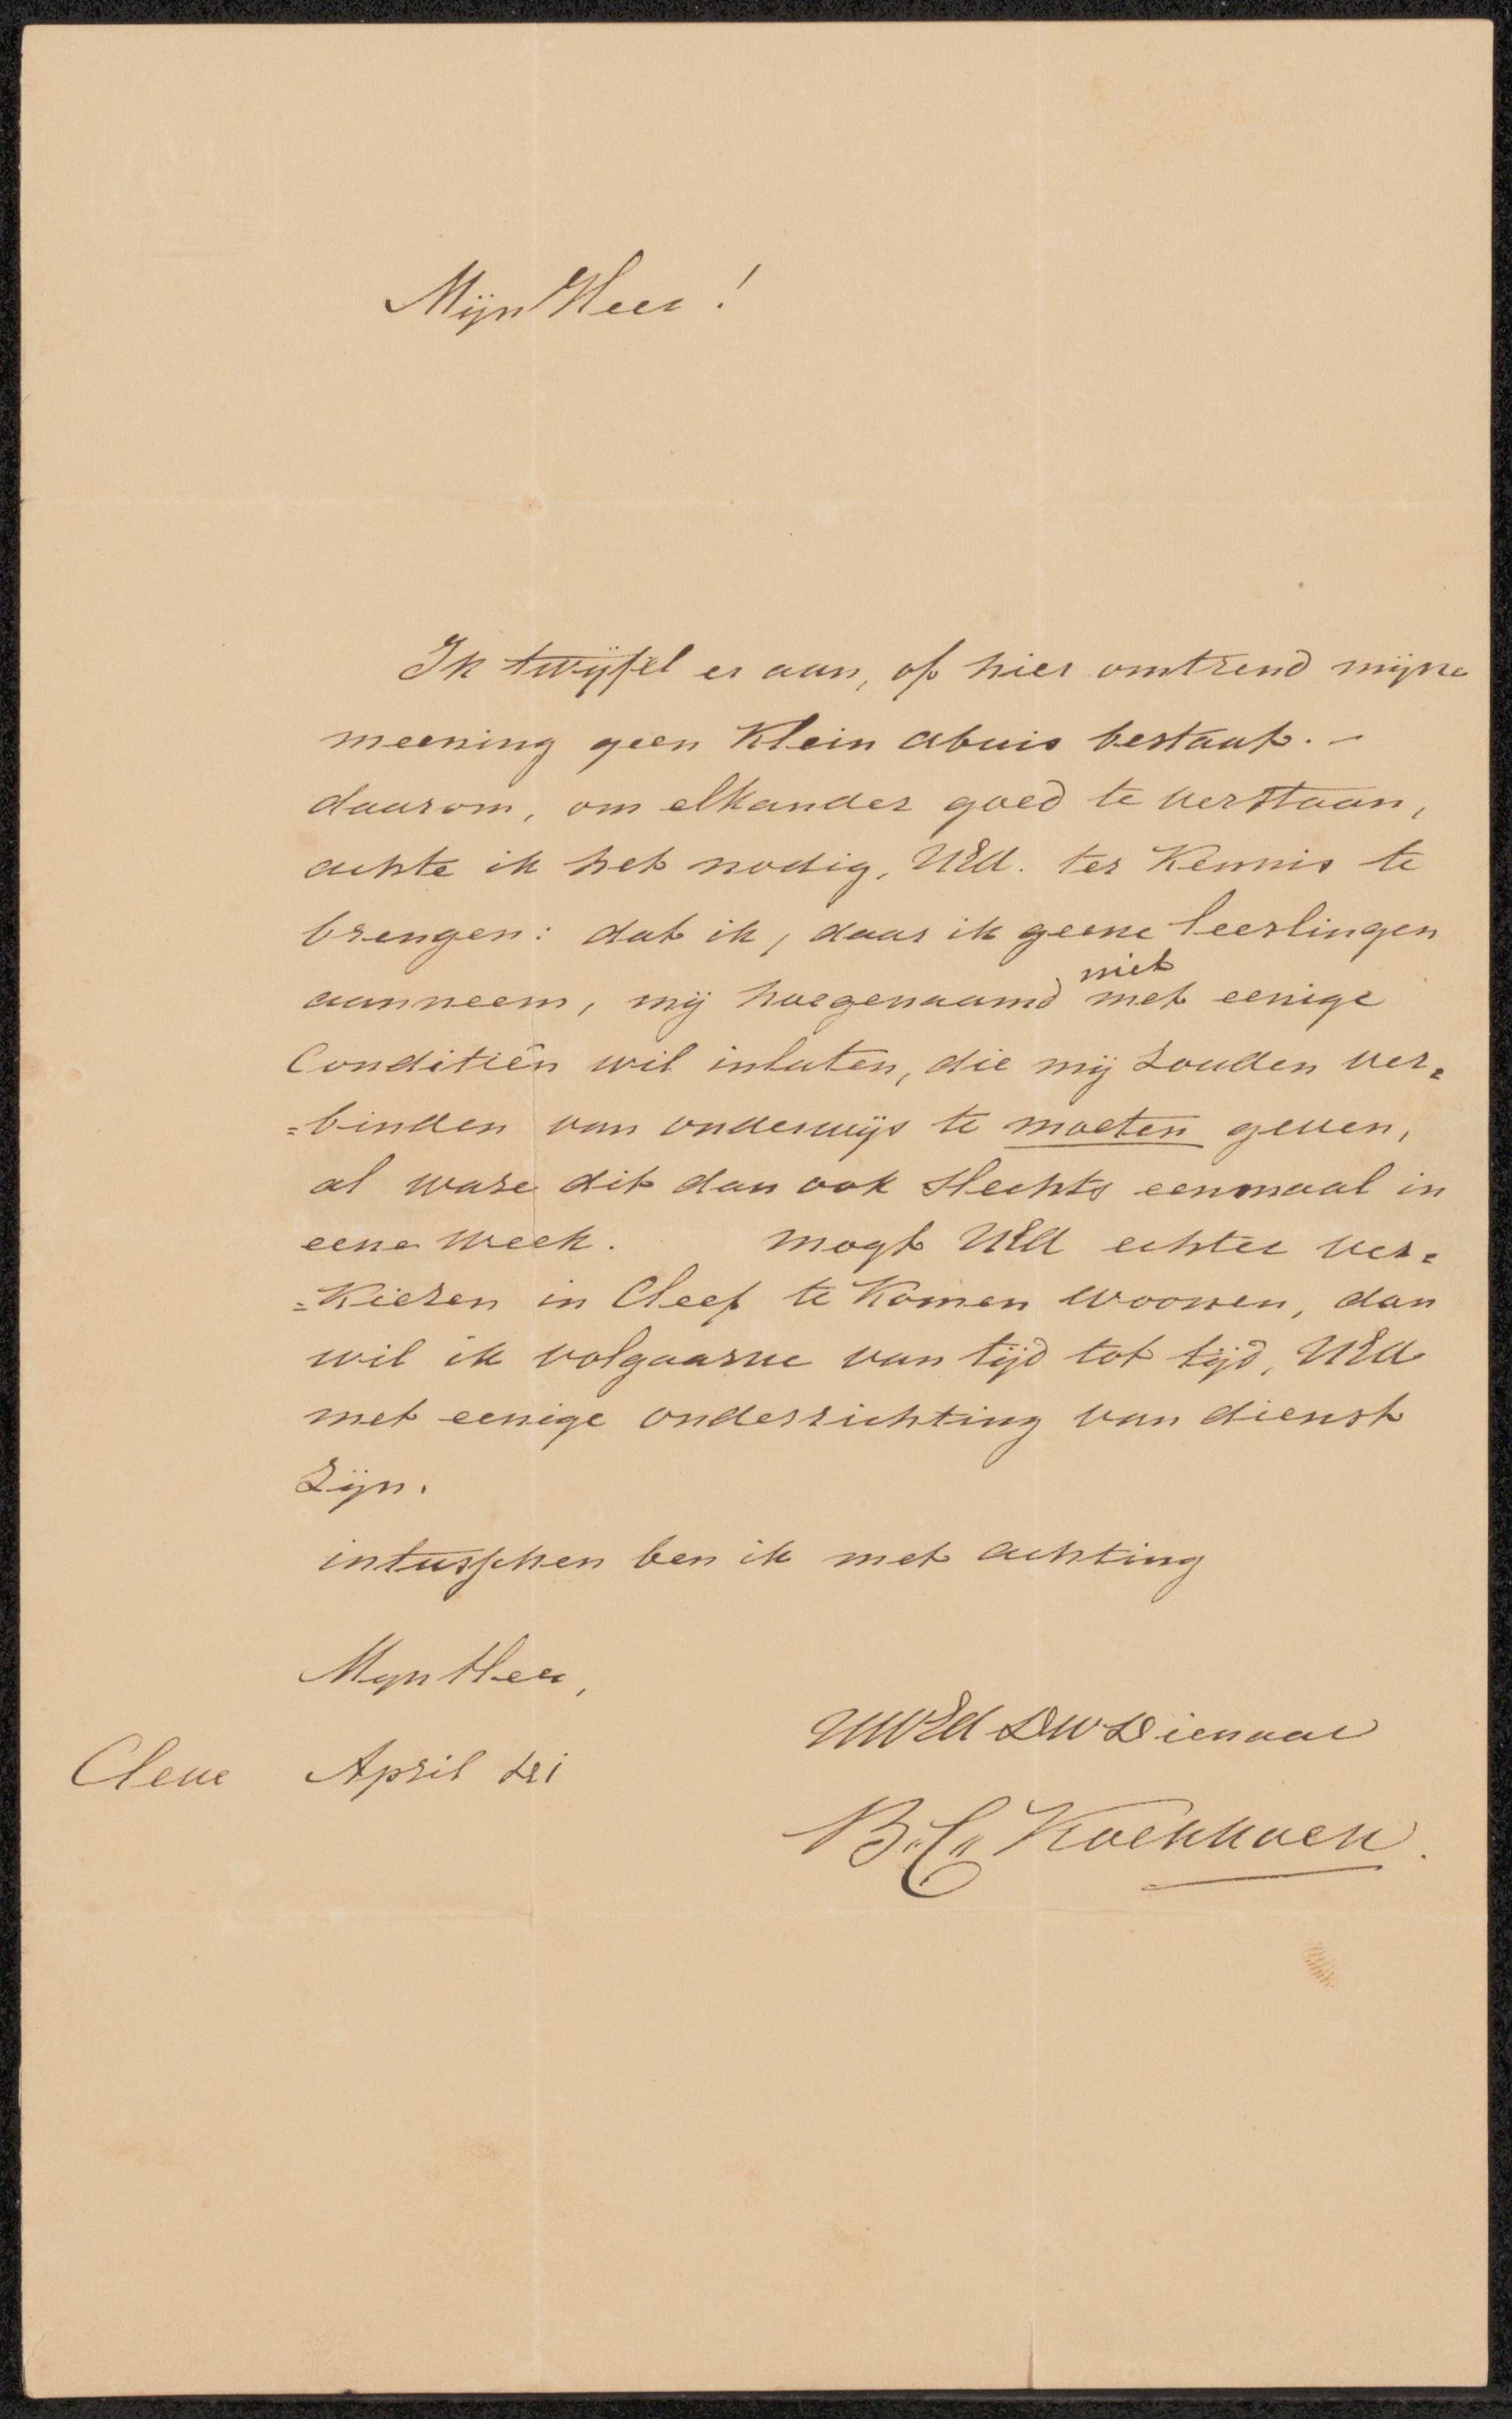 Mijn Heer!
Ik twijfel er aan, of hier omtrend mijne
meening geen Klein abuis bestaat. -
daarom, om elkander goed te verstaan,
achte ik het nodig, UEd. ter Kennis te
brengen: dat ik, daar ik geene leerlingen
niet
aanneem, mij hoegenaamd met eenige
Conditiën wil inlaten, die mij zouden ver=
=binden van onderwijs te moeten geven,
al ware dit dan ook slechts eenmaal in
eene week. mogt UEd echter ver=
=Kiezen in Cleef te Komen woonen, dan
wil ik volgaarne van tijd tot tijd, UEd
met eenige onderrichting van dienst
zijn.
intusschen ben ik met achting
Mijn Heer,
UWEd DW Dienaar
Cleve April
B.C. Koekkoek.